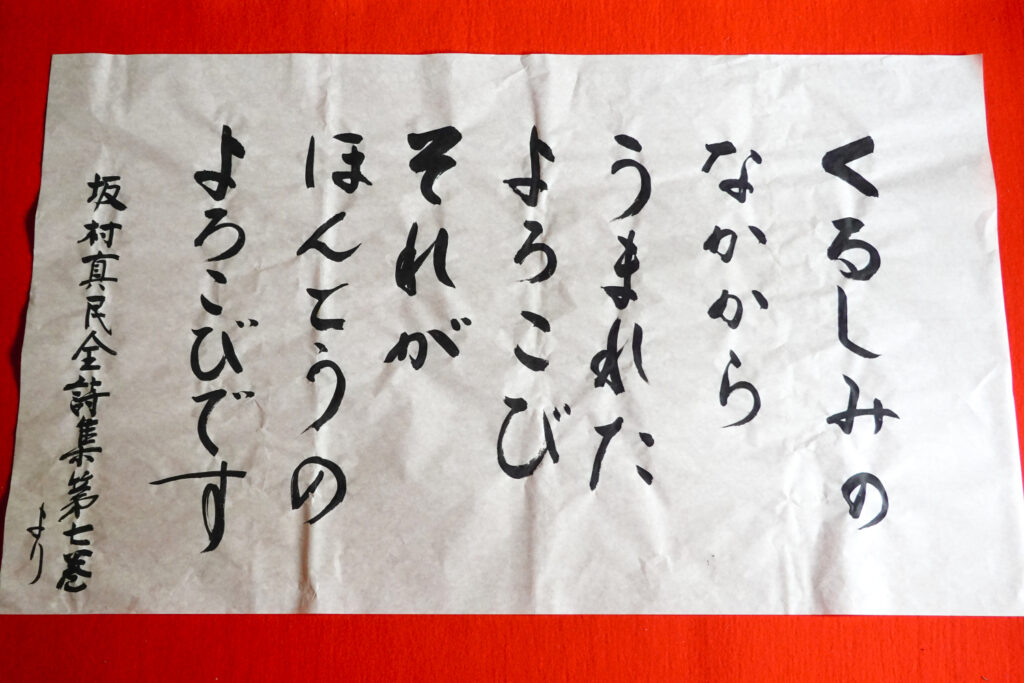 くるしみの
なかから
うまれた
よろこび
それが
ほんとうの
よろこびです
坂村真民全詩集第七巻
より